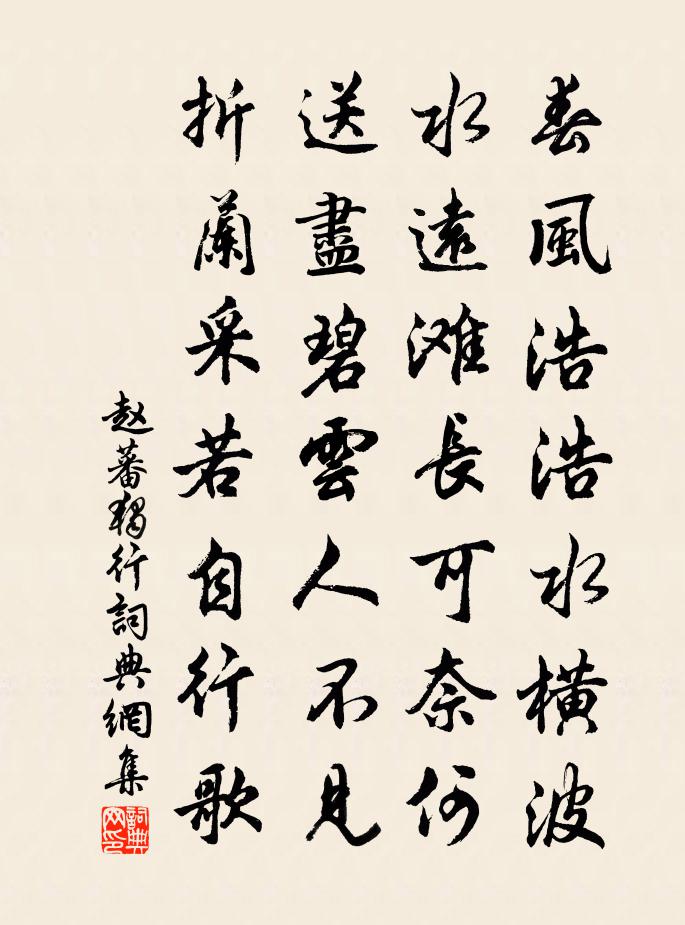 春風浩浩水橫波
水遠滩長可奈何
送盡碧雲人不見
折蘭采若自行歌
赵蕃獨行詞典網集
詞典網印